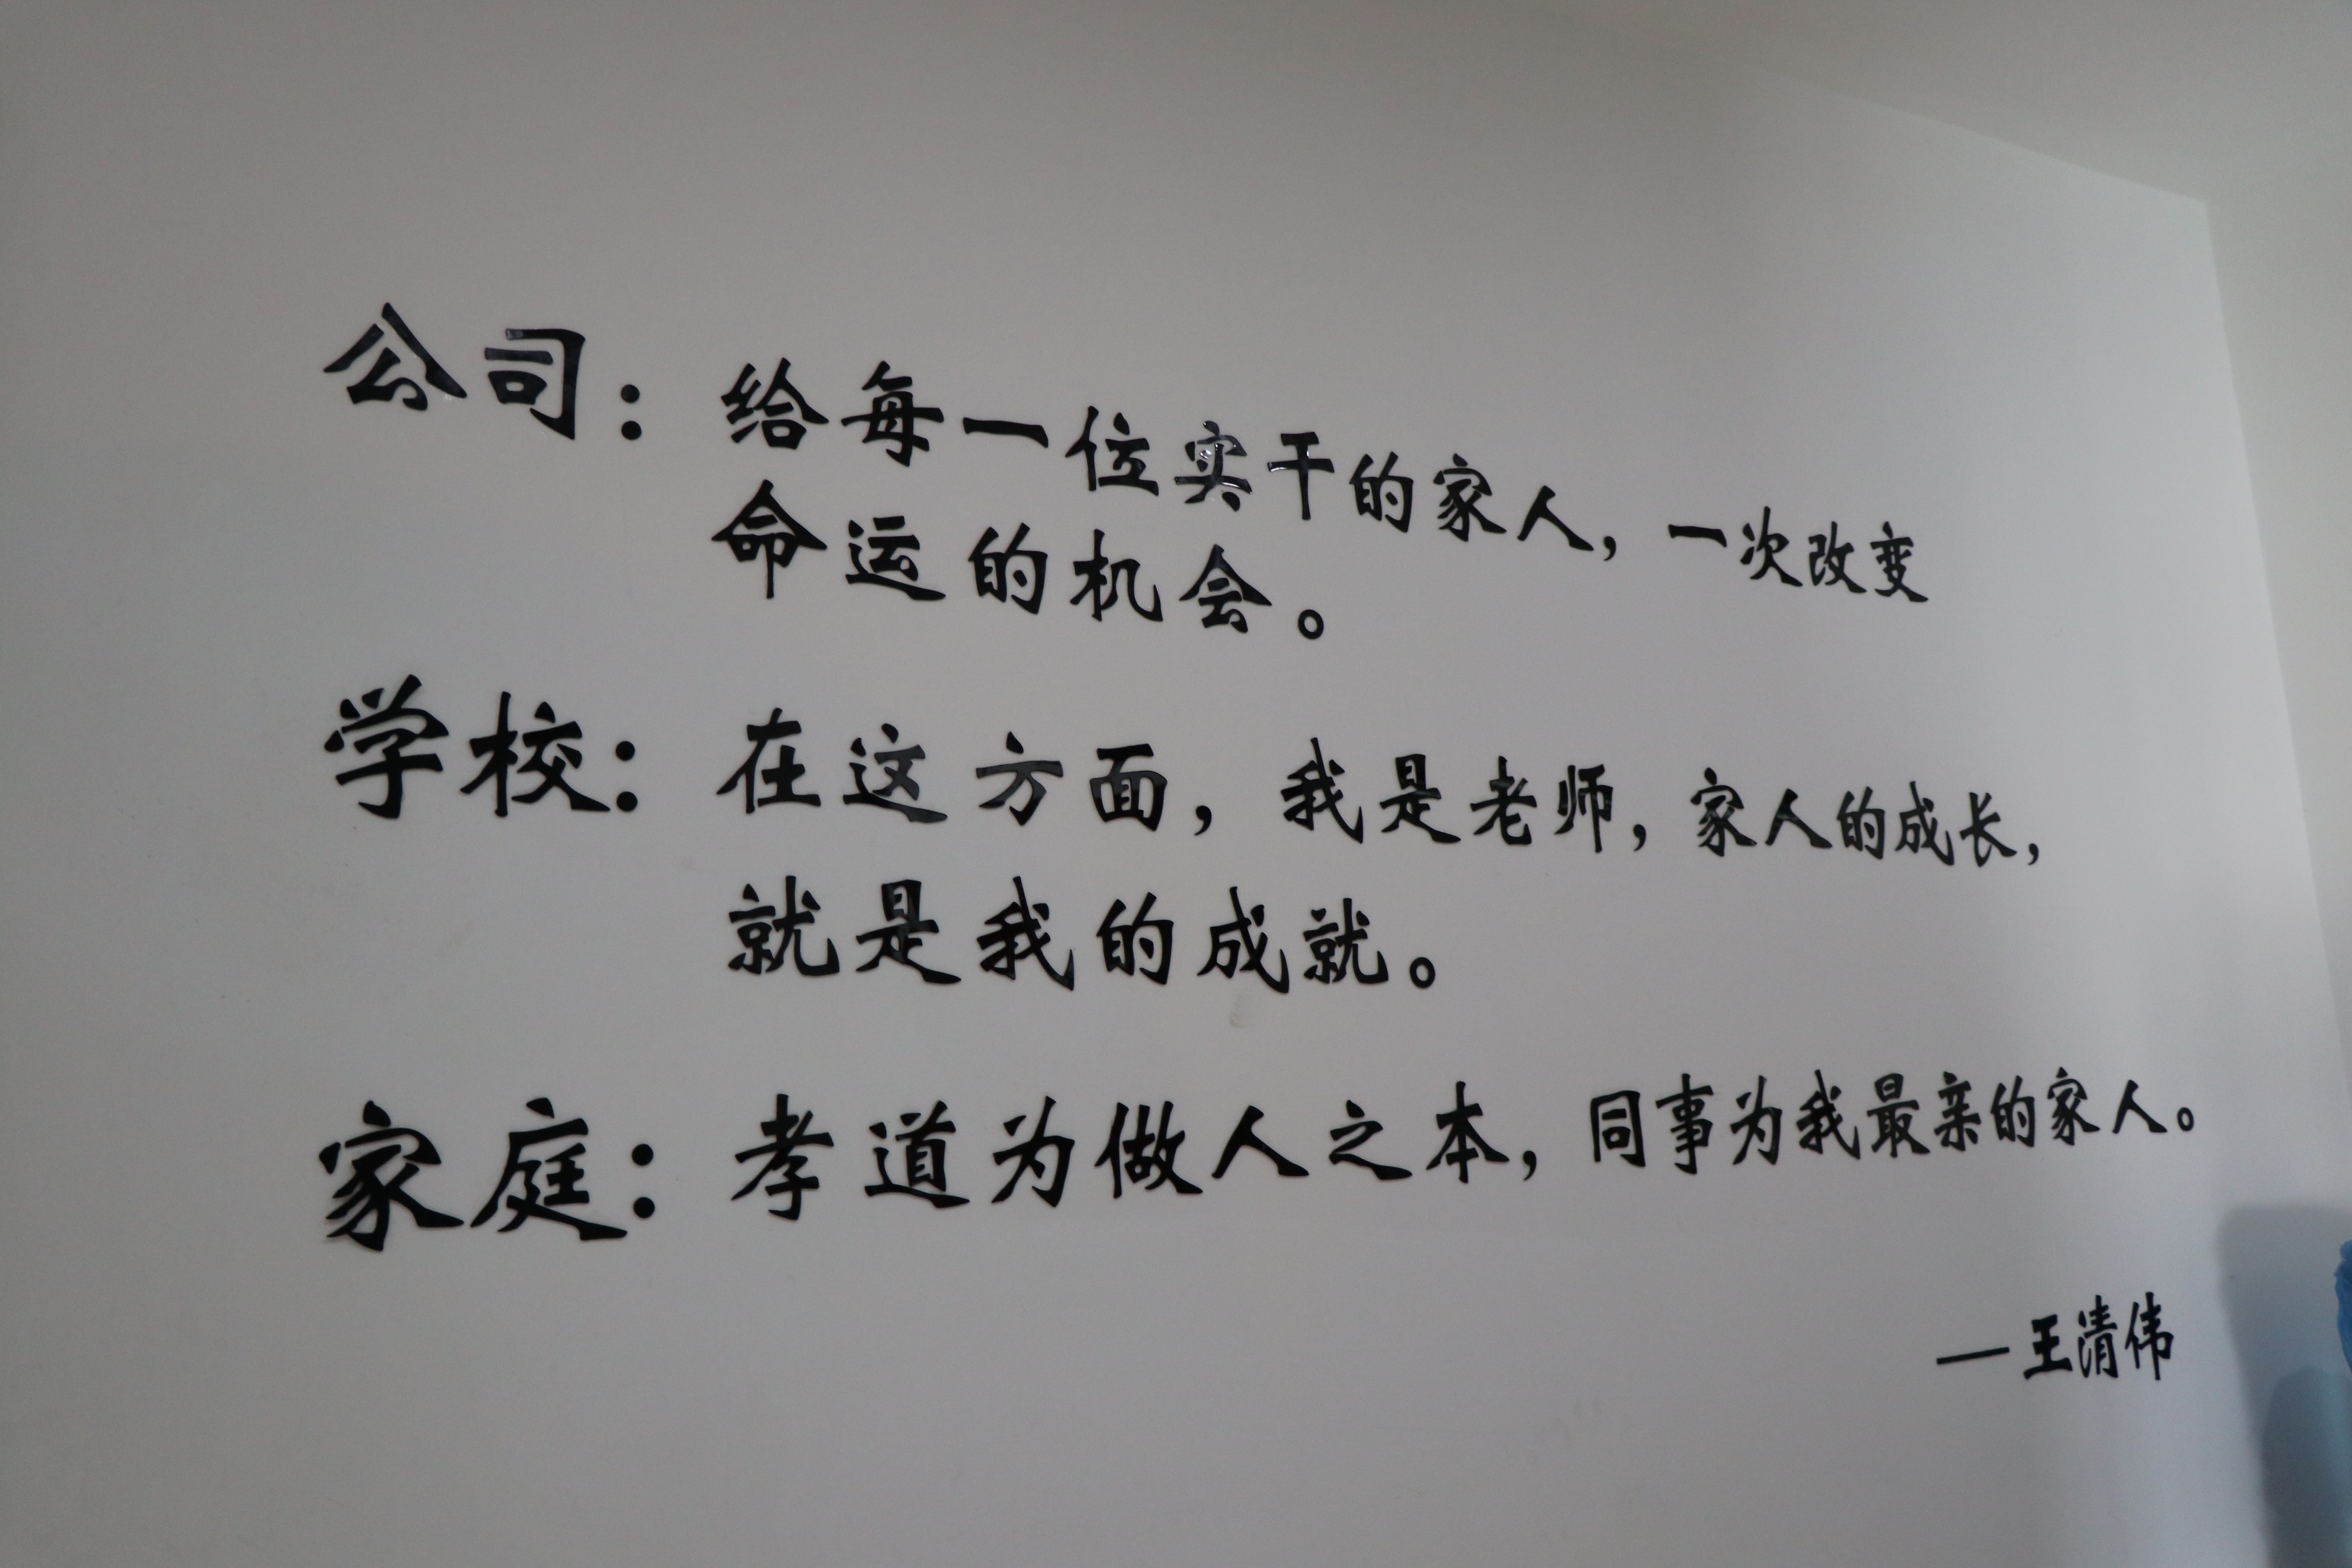 公司：给每一位实干的家人，一次改变
命运的机会。
学校：在这方面，我是老师，家人的成长，
就是我的成就。
家庭：孝道为做人之本，同事为我最亲的家人。
—王清伟